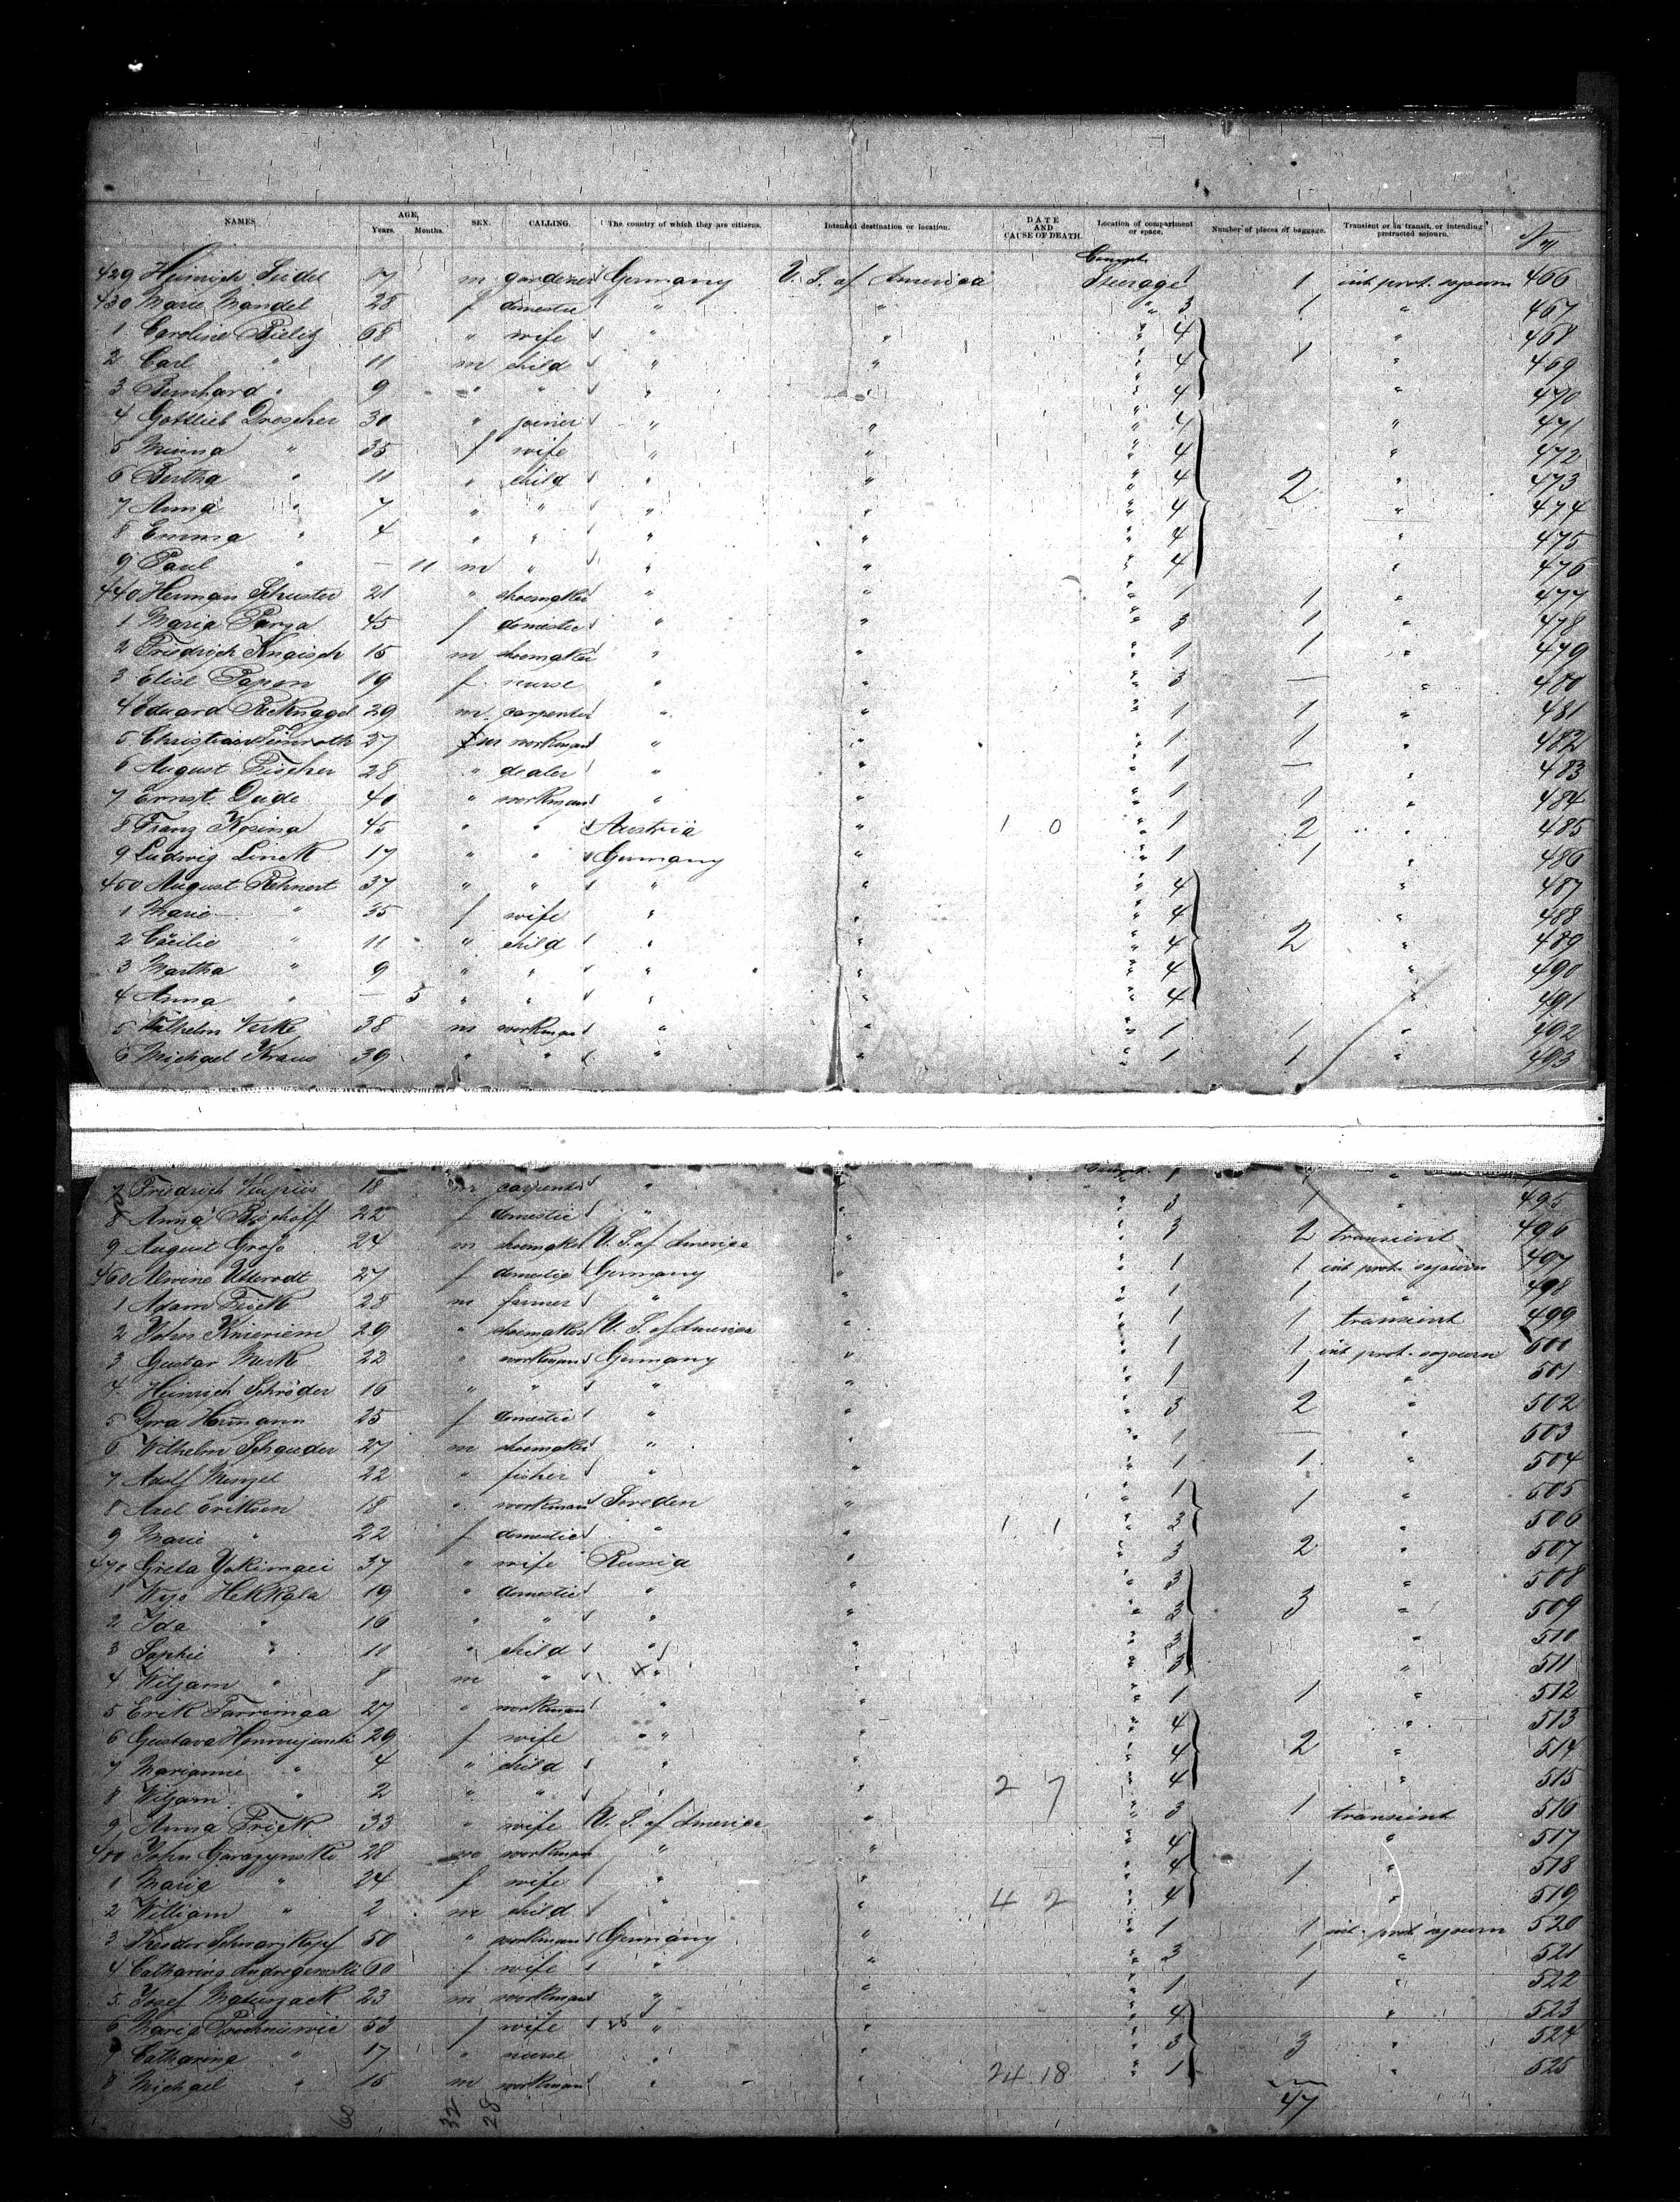 NAMES. AGE. Years. Months. SEX. CALLING. The country of which they are citizens. Intended destination or location. DATE AND CAUSE OF DEATH. Location of compartment or space. Number of pieces of baggage. Transient or in transit, or intending protracted sojourn.
429 Heinrich Seidel 17 m gardener Germany U. S. of America Steerage 1 1 int. prot. sojourn 466
430 Marie Mandel 28 f domestic " " " 3 1 " 467
1 Caroline Bielitz 68 " wife " " " 4 " 468
2 Carl " 11 m child " " " 4 1 " 469
3 Bernhard " 9 " " " " " 4 " 470
4 Gottlieb Drescher 30 " joiner " " " 4 " 471
5 Minna " 35 f wife " " " 4 " 472
6 Bertha " 11 " child " " " 4 2 " 473
7 Anna " 7 " " " " " 4 " 474
8 Emma " 4 " " " " " 4 " 475
9 Paul " — 11 m " " " " 4 " 476
440 Herman Schuster 21 " shoemaker " " " 1 1 " 477
1 Maria Parza 45 f domestic " " " 3 1 " 478
2 Friedrich Knaisch 15 m shoemaker " " " 1 1 " 479
3 Elise Papen 19 f nurse " " " 3 — " 480
4 Eduard Recknagel 29 m carpenter " " " 1 1 " 481
5 Christian 27 m workman " " " 1 1 " 482
6 August Fischer 28 " dealer " " " 1 — " 483
7 Ernst Dude 40 " workman " " " 1 1 " 484
8 Franz Kosina 45 " " Austria " 1 0 " 1 2 " 485
9 Ludwig Linck 17 " " Germany " " 1 1 " 486
450 August Rehnert 37 " " " " " 4 " 487
1 Marie " 35 f wife " " " 4 " 488
2 Cäcilie " 11 " child " " " 4 2 " 489
3 Martha " 9 " " " " " 4 " 490
4 Anna " — 3 " " " " " 4 " 491
5 Wilhelm Virke 38 m workman " " " 1 1 " 492
6 Michael Kraus 39 " " " " " 1 1 " 493
7 Friedrich Vulpius 18 m carpenter " 1 "
8 Anna Bischoff 22 f domestic " " " 3 1 " 495
9 August Groß 24 m shoemaker U. S. of America " " 3 2 transient 496
460 Alwine Utterodt 27 f domestic Germany " " 1 1 int. prot. sojourn 497
1 Adam Fick 28 m farmer " " " 1 1 " 498
2 John Knieriem 29 " shoemaker U. S. of America " " 1 1 transient 499
3 Gustav Merke 22 " workman Germany " " 1 1 int. prot. sojourn 500
4 Heinrich Schröder 16 " " " " " 1 1 " 501
5 Dora Hermann 25 f domestic " " " 3 2 " 502
6 Wilhelm Schauder 27 m shoemaker " " " 1 — " 503
7 Adolf Menzel 22 " fisher " " " 1 1 " 504
8 Axel Eriksen 18 " workman Sweden " " 1 1 " 505
9 Marie " 22 f domestic " " 1 1 " 3 " 506
470 Greta 37 " wife Russia " " 3 2 " 507
1 Hekkala 19 " domestic " " " 3 " 508
2 Ida " 16 " " " " " 3 3 " 509
3 Sophie " 11 " child " " " 3 " 510
4 Wiljam " 8 m " " " " 3 " 511
5 Erik 27 " workman " " " 1 1 " 512
6 Gustava 29 f wife " " " 4 " 513
7 Marianne " 4 " child " " " 4 2 " 514
8 Wiljam " 2 " " " " 2 7 " 4 " 515
9 Anna Frick 33 " wife U. S. of America " " 3 1 transient 516
480 John Garazynski 28 m workman " " " 4 " 517
1 Maria " 24 f wife " " " 4 1 " 518
2 William " 2 m child " " 4 2 " 4 " 519
3 Schwarzkopf 50 " workman Germany " " 1 1 int. prot. sojourn 520
4 Catharina 60 f wife " " " 3 1 " 521
5 Josef Matuszack 23 m workman " " " 1 1 " 522
6 Maria 53 f wife " " " 4 " 523
7 Catharina " 17 " nurse " " " 3 3 " 524
8 Michael " 15 m workman " " 24 18 " 1 " 525
60 32 28 47